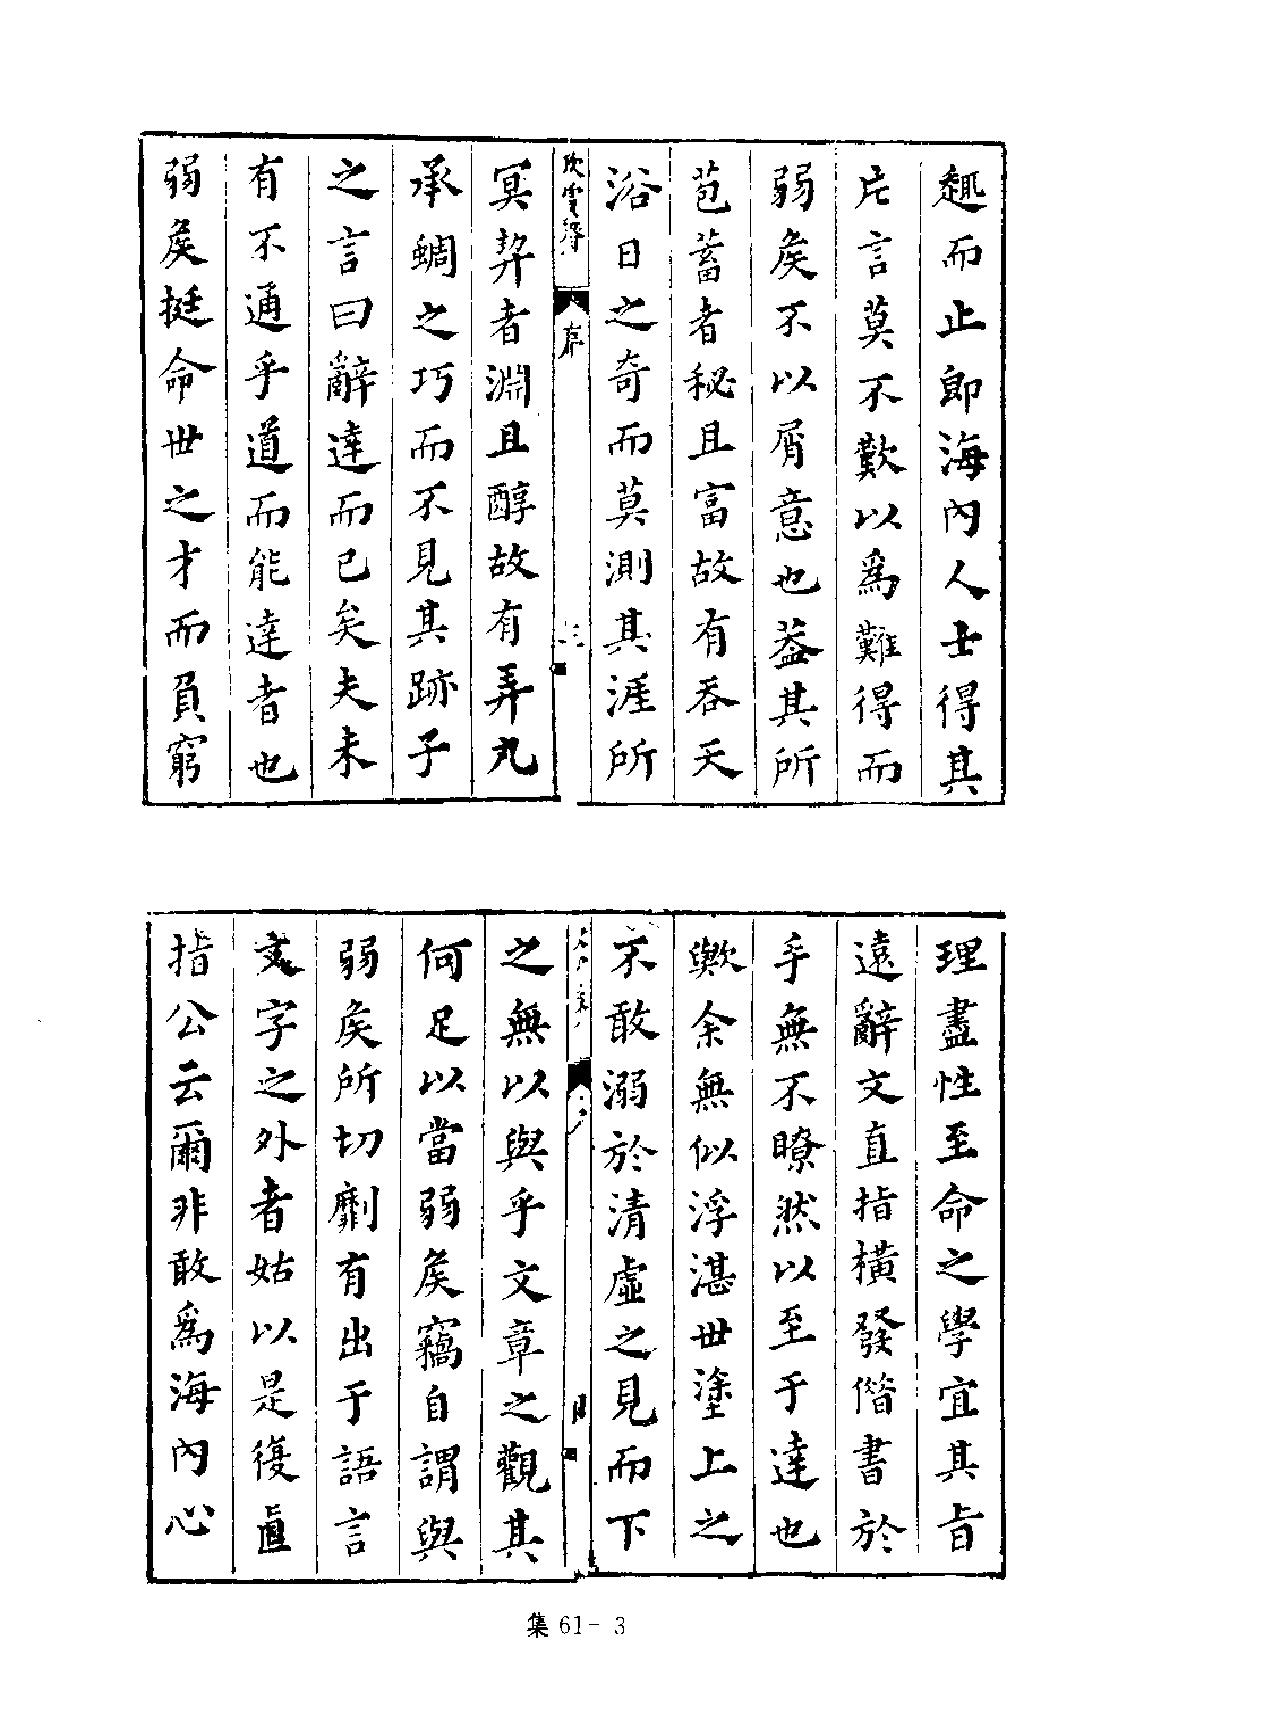 趣而止即海內人士得其
片言莫不歎以爲難得而
弱矦不以屑意也葢其所
苞蓄者秘且富故有吞天
浴日之奇而莫測其涯所
序
三
冥契者淵且醇故有弄丸
承蜩之巧而不見其跡子
之言曰辭達而已矣夫未
有不通乎道而能達者也
弱矦挺命世之才而負窮
理盡性至命之學宜其旨
遠辭文直指橫發僣書於
手無不瞭然以至于達也
歟余無似浮湛世塗上之
不敢溺於清虛之見而下
之無以與乎文章之觀其
何足以當弱矦竊自謂與
弱矦所切劘有出于語言
文字之外者姑以是復眞
指公云爾非敢爲海內心
集61-3